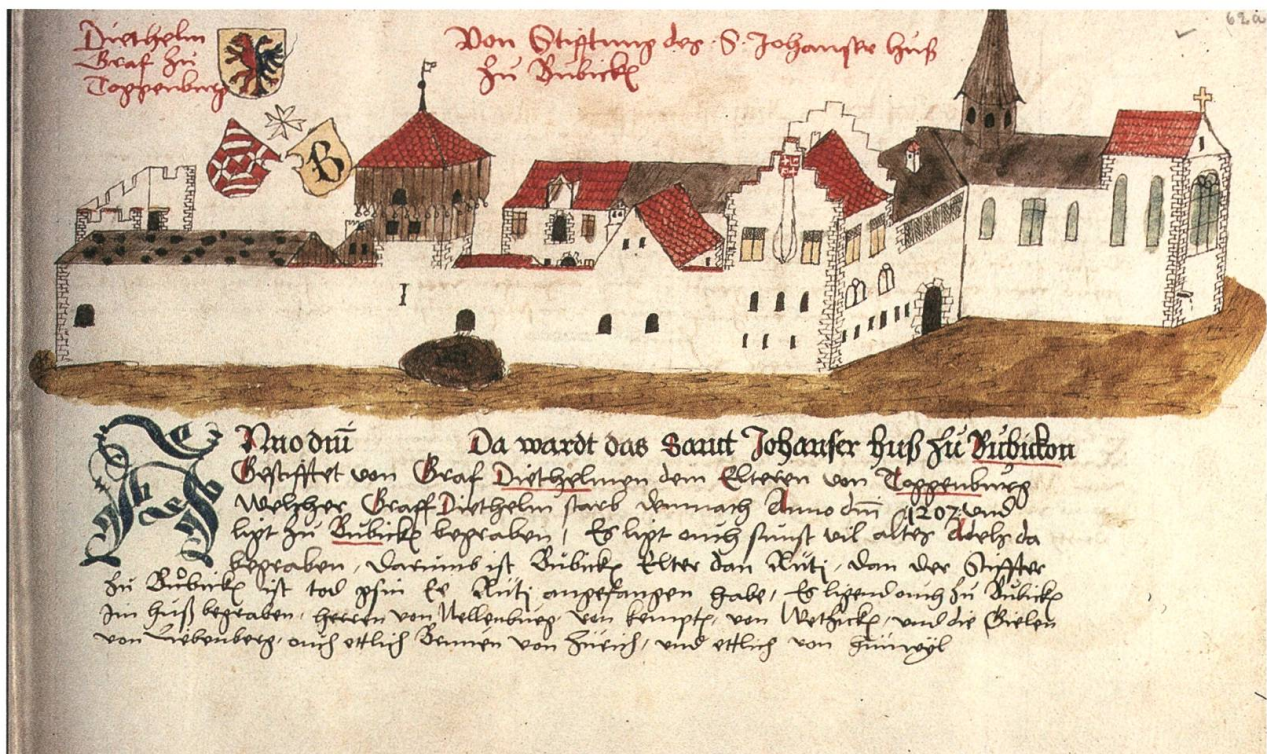 Diethelm
Graf zu
Toggenburg
Von Stifftung des S. Johanser huß
zu Bůbickẽ
62a
B
I
Anno dnī Da wardt das Sanct Johanser huß zů Bůbickon
Gestifftet von Graf Diethelmen dem Elteren von Toggenburg
Welcher Graff Diethelm starb demnach Anno dnī 1207 und
ligt zů Bubickẽ begraben / Es ligt ouch sunst vil altes Adels da
begraben / darumb ist Bůbickẽ Elter dan Rüti / dan der Stiffter
zů Bůbickẽ ist tod gsin Ee Rüti angefangen habe / Es ligend ouch zů Bůbickẽ
Im huß begraben / herren von Nellenburg / von kemptẽ / von Wetzickẽ / und die Gielen
von Liebenberg / ouch ettlich von Zürich / und ettlich von